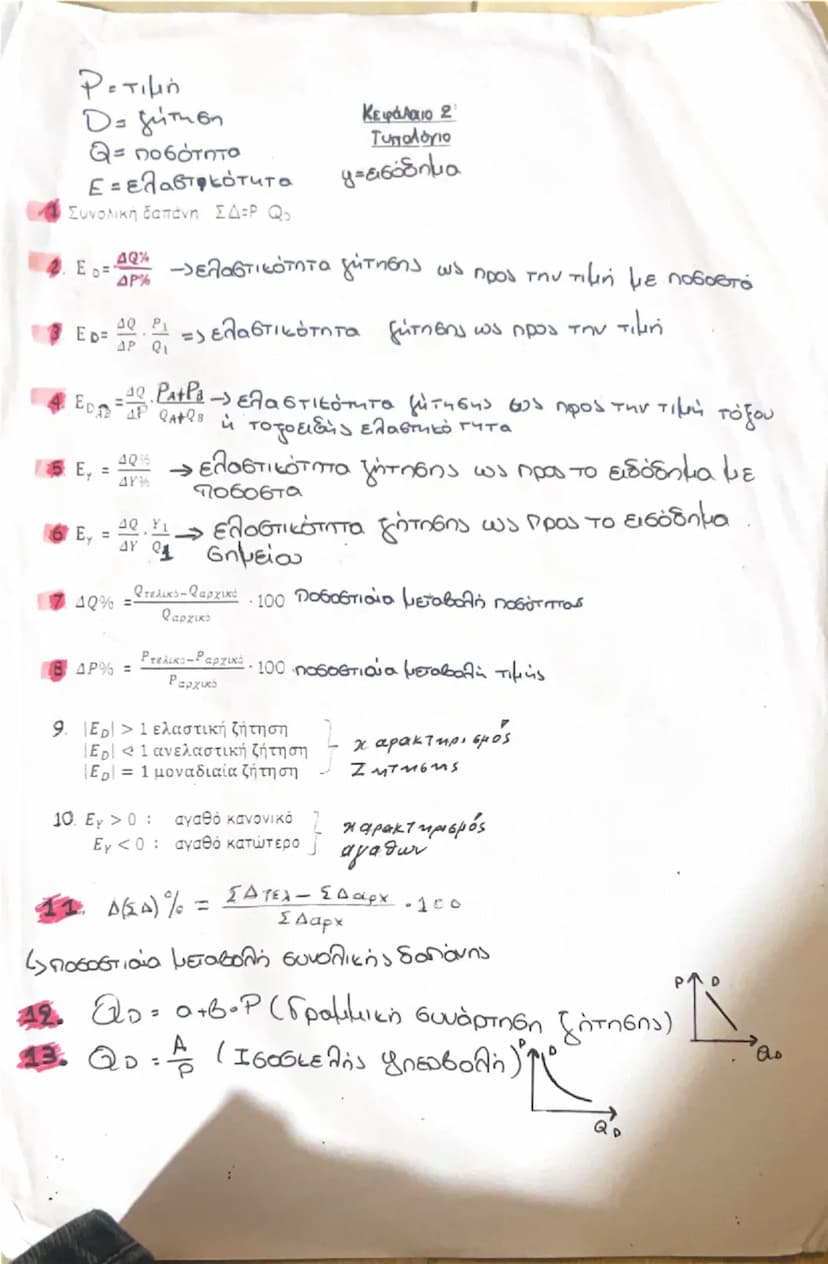 P = τιμή
D = ζήτηση
Q = ποσότητα
E = ελαστικότητα
Κεφάλαιο 2
Τυπολόγιο
y = εισόδημα
1 Συνολική δαπάνη ΣΔ=P Q_D
2. E_D = ΔQ% / ΔP% → ελαστικότητα ζήτησης ως προς την τιμή με ποσοστό
3 E_D = ΔQ/ΔP · P₁/Q₁ => ελαστικότητα ζήτησης ως προς την τιμή
4. E_D_AB = ΔQ/ΔP · P_A+P_B / Q_A+Q_B → ελαστικότητα ζήτησης ως προς την τιμή τόξου
ή τοξοειδής ελαστικότητα
5 E_Y = ΔQ% / ΔY% → ελαστικότητα ζήτησης ως προς το ειδόδημα με
ποσοστα
6 E_Y = ΔQ/ΔY · Y₁/Q₁ → ελαστικότητα ζήτησης ως προς το εισόδημα.
σημείου
7 ΔQ% = Qτελικό−Qαρχικό / Qαρχικό · 100 Ποσοστιαία μεταβολή ποσότητας
8 ΔP% = Pτελικό−Pαρχικό / Pαρχικό · 100 ποσοστιαία μεταβολή τιμής
9. |E_D| > 1 ελαστική ζήτηση
|E_D| < 1 ανελαστική ζήτηση
|E_D| = 1 μοναδιαία ζήτηση
χαρακτηρισμός
Ζητησης
10. E_Y > 0 : αγαθό κανονικό
E_Y < 0 : αγαθό κατώτερο
χαρακτηρισμός
αγαθων
11. Δ(ΣΔ)% = ΣΔτελ − ΣΔαρχ / ΣΔαρχ · 100
↳ ποσοστιαία μεταβολή συνολικής δαπάνης
12. Q_D = α+β·P (Γραμμική συνάρτηση ζήτησης)
P D
Q_D
13. Q_D = A/P (Ισοσκελής υπερβολή)
P D
Q_D